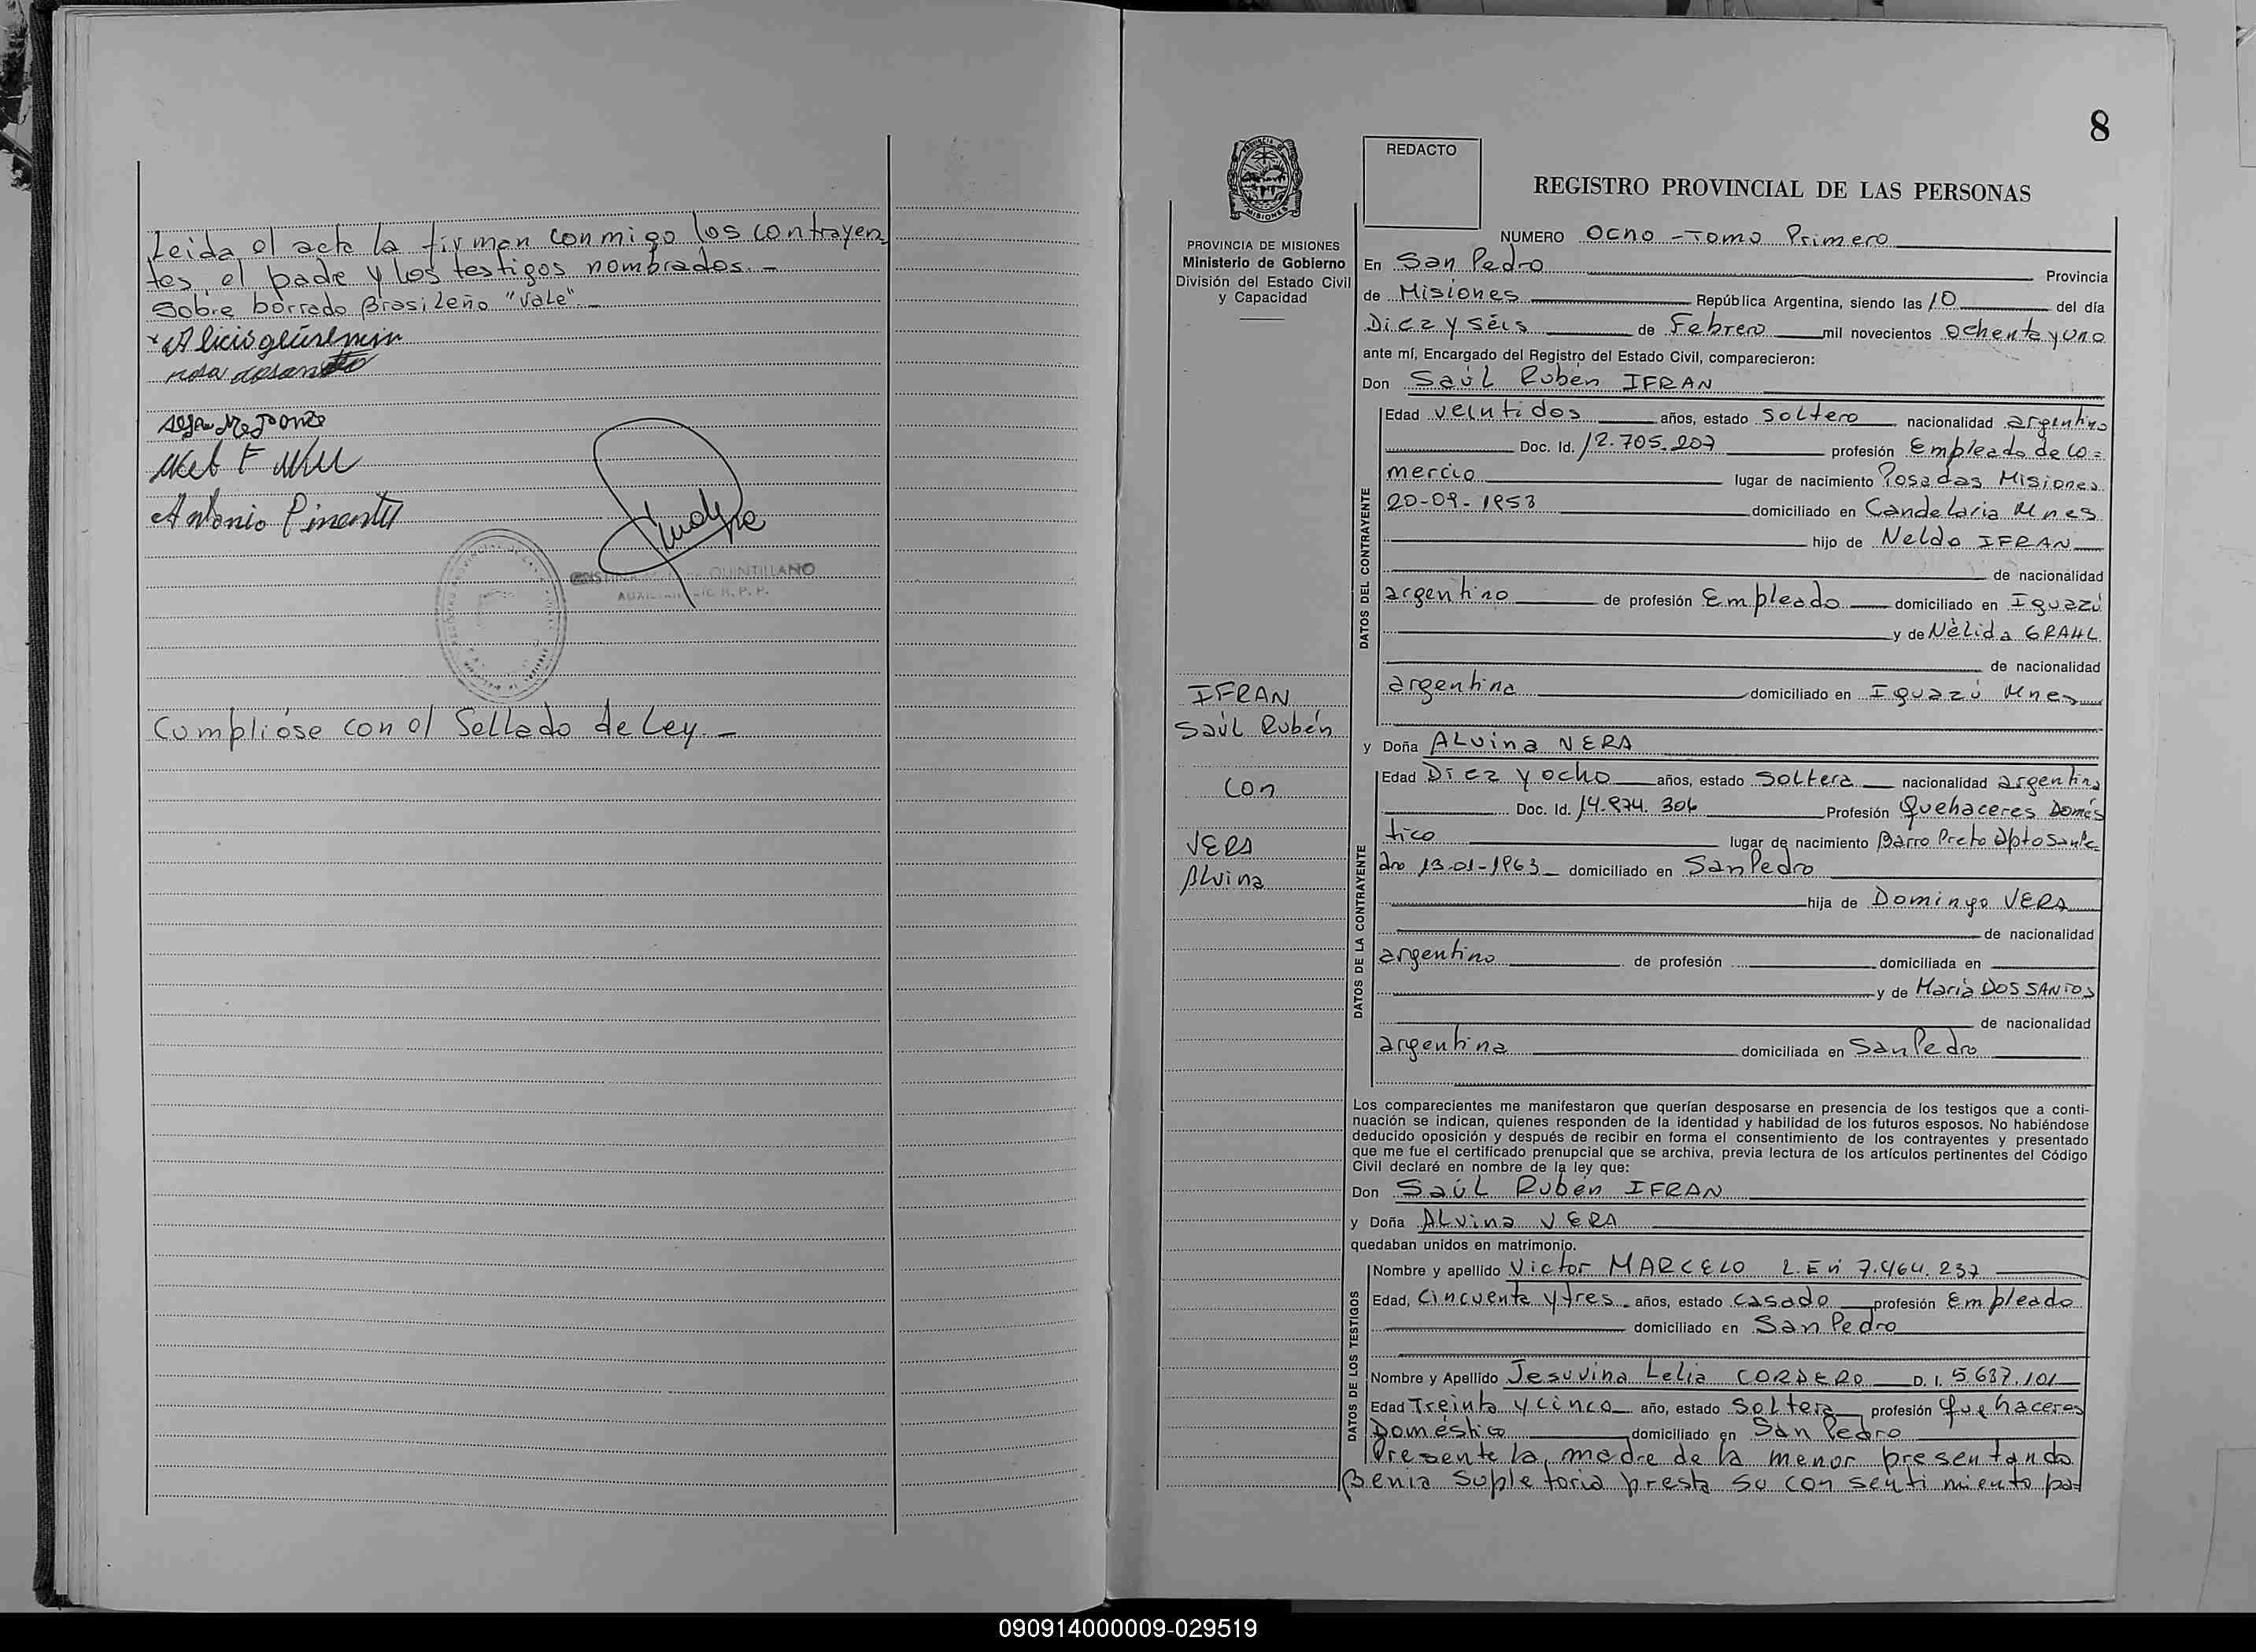 Leida el acta la firman conmigo los contrayen
tes, el padre y los testigos nombrados.-
Sobre borrado Brasileño "Vale"
Antonio Pimentel
QUINTILLANO
Cumplióse con el Sellado de Ley.-
8
REDACTO
REGISTRO PROVINCIAL DE LAS PERSONAS
PROVINCIA DE MISIONES
Ministerio de Gobierno
División del Estado Civil
y Capacidad
IFRAN
Saúl Rubén
con
VERA
Alvina
NUMERO Ocho - Tomo Primero
En San Pedro Provincia
de Misiones República Argentina, siendo las 10 del día
Diez y séis de Febrero mil novecientos ochenta y uno
ante mí, Encargado del Registro del Estado Civil, comparecieron:
Don Saúl Rubén IFRAN
DATOS DEL CONTRAYENTE
Edad veintidos años, estado soltero nacionalidad argentino
Doc. Id. 12.705.207 profesión Empleado de Co=
mercio lugar de nacimiento Posadas Misiones
20-09-1953 domiciliado en Candelaria Mnes
hijo de Neldo IFRAN
de nacionalidad
argentino de profesión Empleado domiciliado en Iguazú
y de Nélida GRAHL
de nacionalidad
argentina domiciliado en Iguazú Mnes
y Doña Alvina VERA
DATOS DE LA CONTRAYENTE
Edad Diez y ocho años, estado soltera nacionalidad argentina
Doc. Id. 14.874.306 Profesión Quehaceres Domés
tico lugar de nacimiento Barro Preto Dpto San Pe
dro 13-01-1963 domiciliado en San Pedro
hija de Domingo VERA
de nacionalidad
argentino de profesión domiciliada en
y de María DOS SANTOS
de nacionalidad
argentina domiciliada en San Pedro
Los comparecientes me manifestaron que querían desposarse en presencia de los testigos que a conti-
nuación se indican, quienes responden de la identidad y habilidad de los futuros esposos. No habiéndose
deducido oposición y después de recibir en forma el consentimiento de los contrayentes y presentado
que me fue el certificado prenupcial que se archiva, previa lectura de los artículos pertinentes del Código
Civil declaré en nombre de la ley que:
Don Saúl Rubén IFRAN
y Doña Alvina VERA
quedaban unidos en matrimonio.
DATOS DE LOS TESTIGOS
Nombre y apellido Victor MARCELO L.E Nº 7.464.237
Edad, Cincuenta y tres años, estado casado profesión Empleado
domiciliado en San Pedro
Nombre y Apellido Jesuvina Lelia CORDERO D. I. 5.637.101
Edad Treinta y cinco año, estado Soltera profesión Quehaceres
Doméstico domiciliado en San Pedro
Presente la madre de la menor presentando
Benia Supletoria presta su consentimiento pa
090914000009-029519